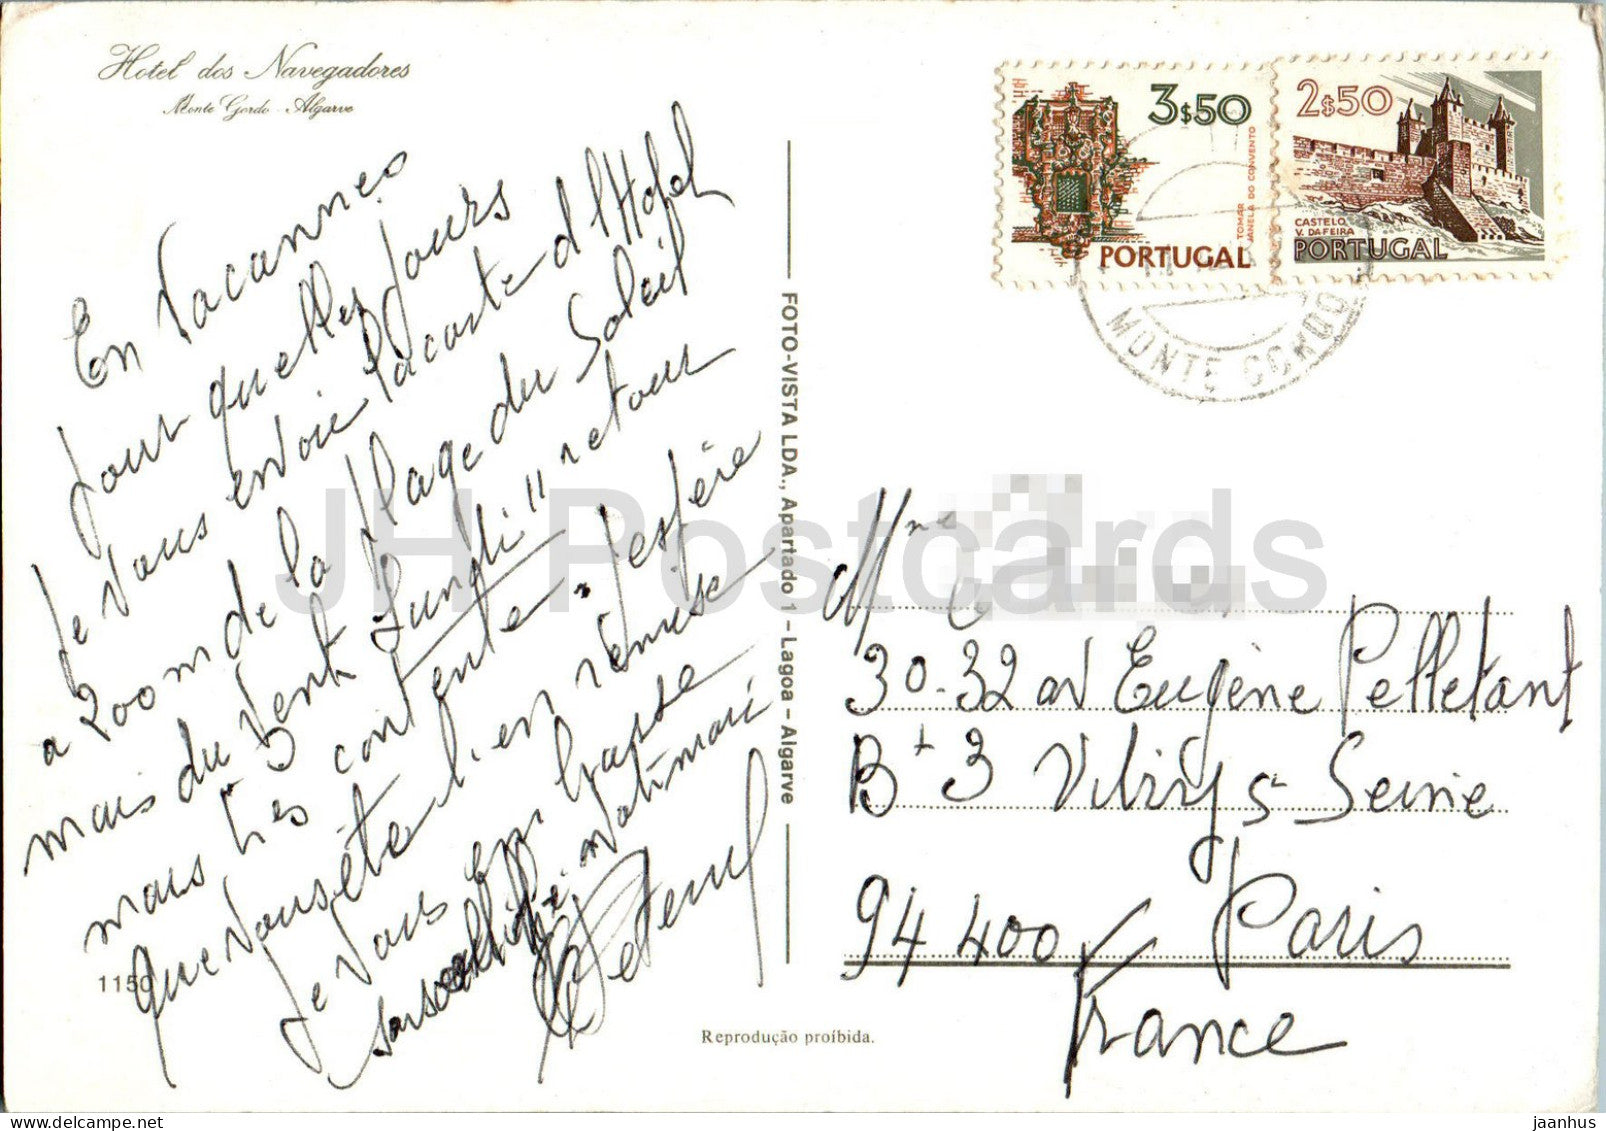 Hotel dos Navegadores
Monte Gordo - Algarve
En Vacannes
pour quelles jours
Je vous envoie la carte d l'Hotel
a 200 m de la Plage du Soleil
mais du vent Lundi" retour
mais très contente. J'espère
que vous été bien remise
Je vous em brasse
1150
FOTO-VISTA LDA., Apartado 1 - Lagoa - Algarve
Reprodução proíbida.
3$50
TOMAR
JANELA DO CONVENTO
PORTUGAL
2$50
CASTELO
V. DA FEIRA
PORTUGAL
MONTE GORDO
Mme
30-32 av Eugène Pelletant
Bt 3 Vitry s Seine
94 400 Paris
France
JH Postcards
www.delcampe.net
jaanhus